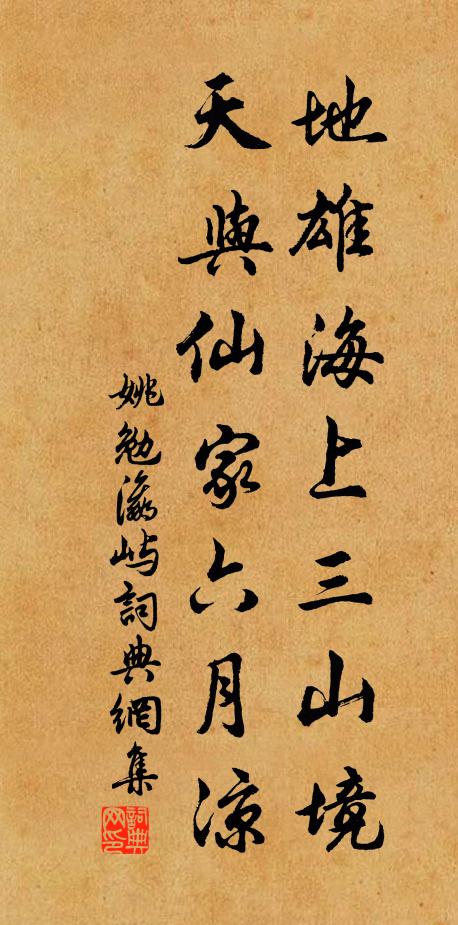 地雄海上三山境
天與仙家六月涼
姚勉瀛嶼詞典網集
詞典
网印